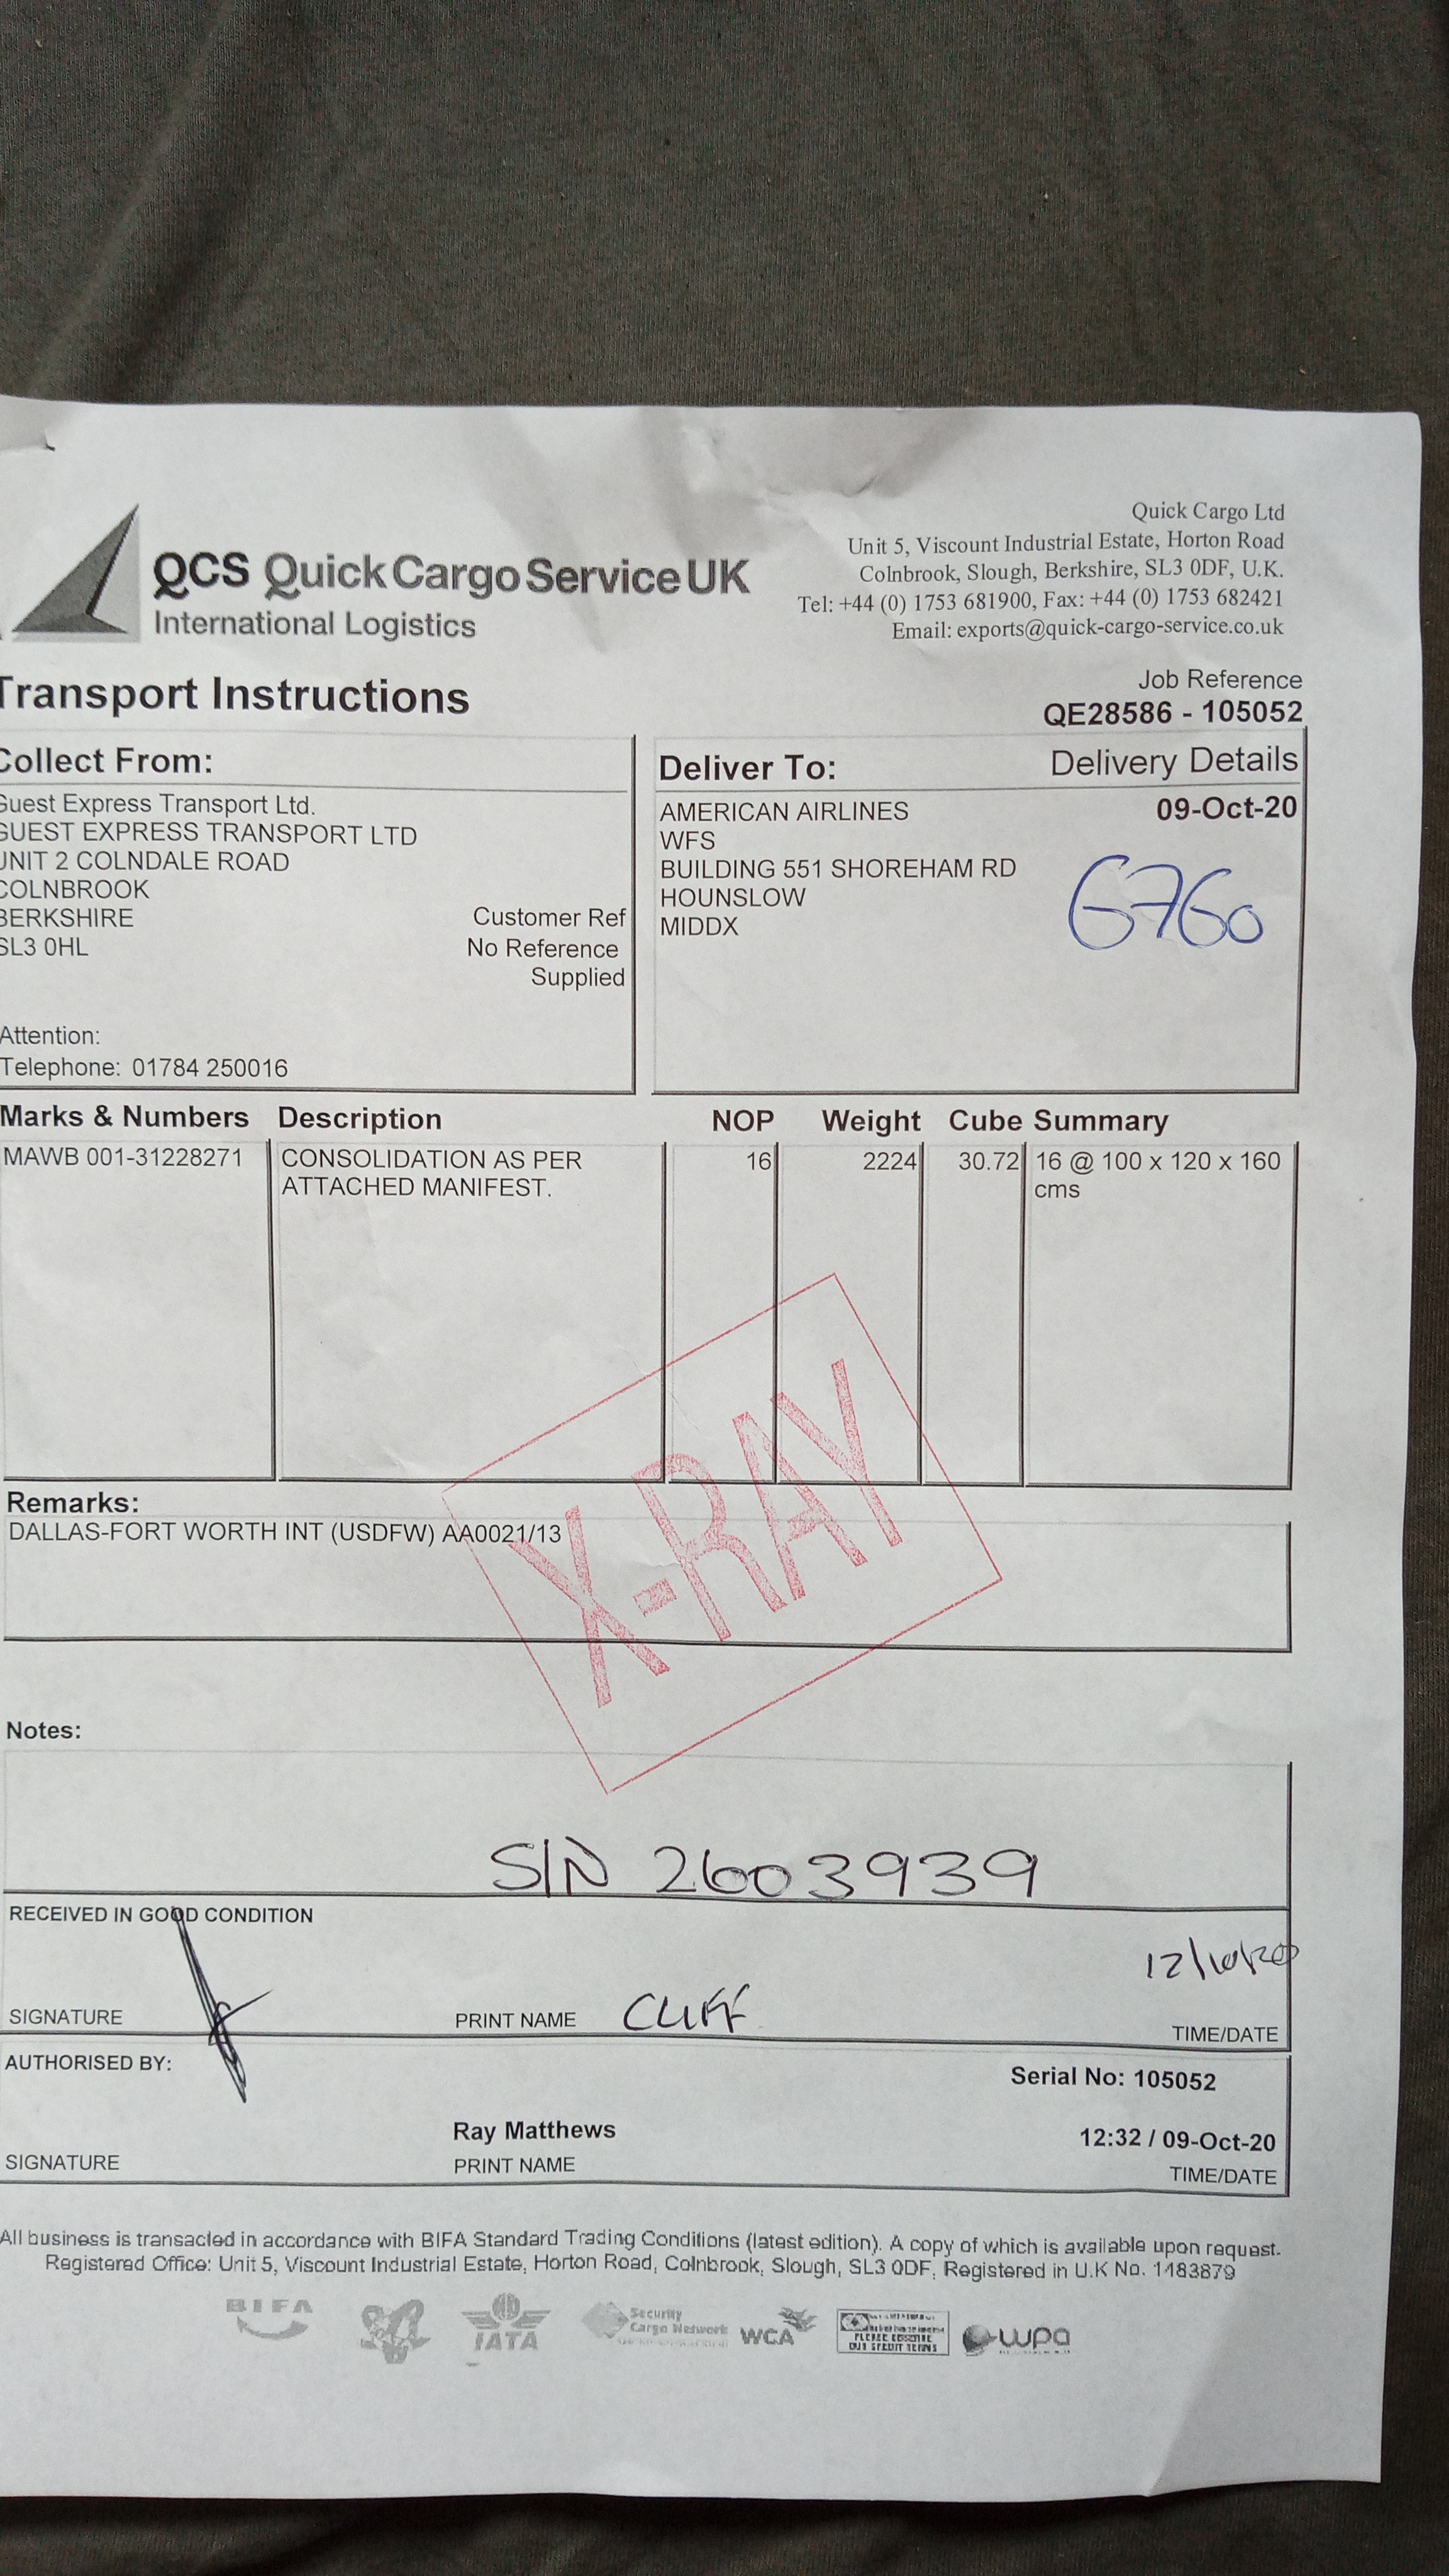 QCS Quick Cargo Service UK
International Logistics
Quick Cargo Ltd
Unit 5, Viscount Industrial Estate, Horton Road
Colnbrook, Slough, Berkshire, SL3 0DF, U.K.
Tel: +44 (0) 1753 681900, Fax: +44 (0) 1753 682421
Email: exports@quick-cargo-service.co.uk
Transport Instructions
Job Reference
QE28586 - 105052
Collect From:
Guest Express Transport Ltd.
GUEST EXPRESS TRANSPORT LTD
UNIT 2 COLNDALE ROAD
COLNBROOK
BERKSHIRE
SL3 0HL
Customer Ref
No Reference
Supplied
Attention:
Telephone: 01784 250016
Deliver To:
Delivery Details
AMERICAN AIRLINES
09-Oct-20
WFS
BUILDING 551 SHOREHAM RD
HOUNSLOW
MIDDX
G760
Marks & Numbers Description NOP Weight Cube Summary
MAWB 001-31228271 CONSOLIDATION AS PER 16 2224 30.72 16 @ 100 x 120 x 160
ATTACHED MANIFEST. cms
X-RAY
Remarks:
DALLAS-FORT WORTH INT (USDFW) AA0021/13
Notes:
SIN 2603939
RECEIVED IN GOOD CONDITION
12/10/20
SIGNATURE PRINT NAME CLIFF TIME/DATE
AUTHORISED BY:
Serial No: 105052
Ray Matthews 12:32 / 09-Oct-20
SIGNATURE PRINT NAME TIME/DATE
All business is transacted in accordance with BIFA Standard Trading Conditions (latest edition). A copy of which is available upon request.
Registered Office: Unit 5, Viscount Industrial Estate, Horton Road, Colnbrook, Slough, SL3 0DF, Registered in U.K No. 1183879
BIFA
IATA
Security
Cargo Network
WCA
PLEASE OBSERVE
OUR CREDIT TERMS
wpa